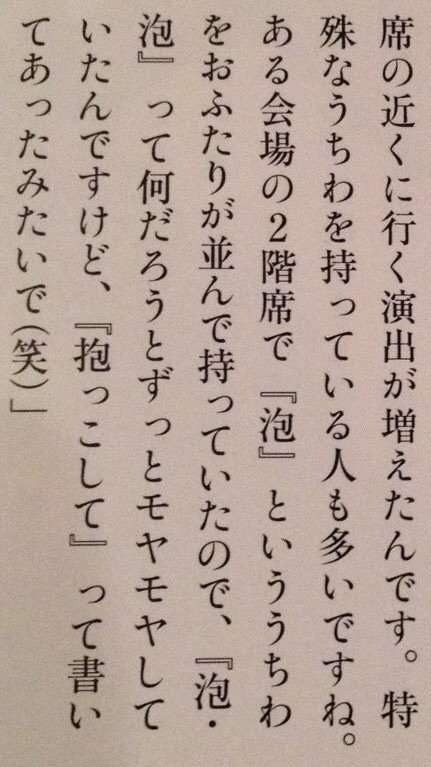 席の近くに行く演出が増えたんです。特
殊なうちわを持っている人も多いですね。
ある会場の2階席で『泡』といううちわ
をおふたりが並んで持っていたので、『泡・
泡』って何だろうとずっとモヤモヤして
いたんですけど、『抱っこして』って書い
てあったみたいで(笑)」